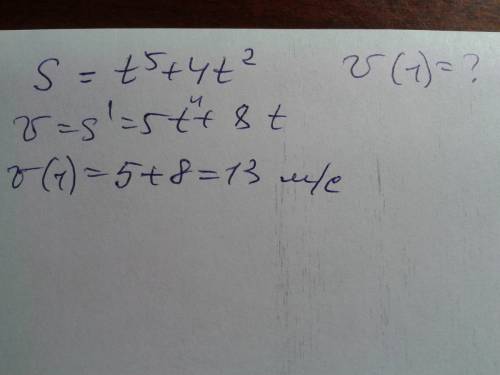 S = t⁵+4t² v(1)=?
v=s'=5t⁴+8t
v(1)=5+8=13 м/с